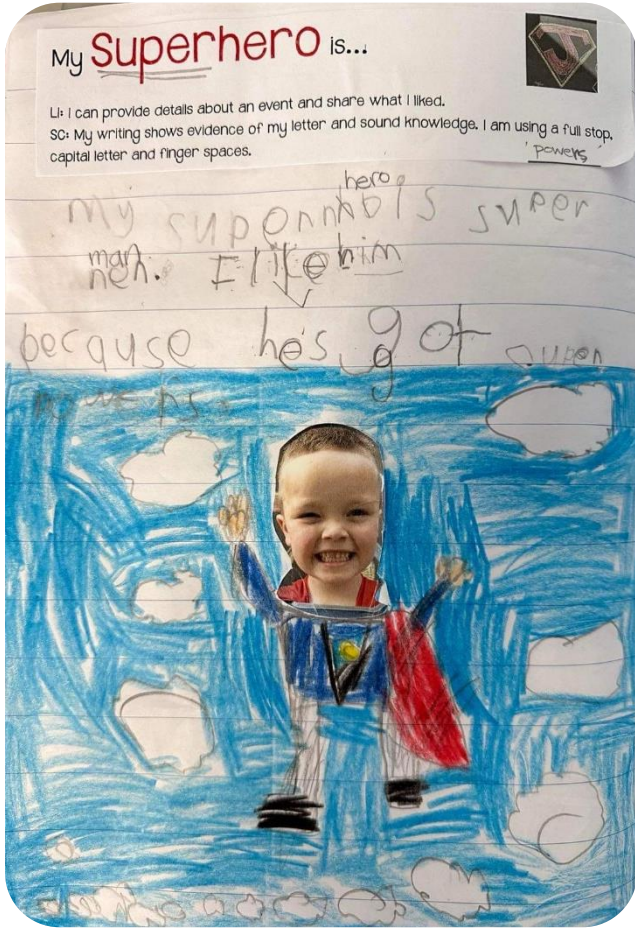 My Superhero is...
LI: I can provide details about an event and share what I liked.
SC: My writing shows evidence of my letter and sound knowledge. I am using a full stop,
capital letter and finger spaces.
'powers'
hero
my is super
man
nen. I like him
because he's got super
powers.